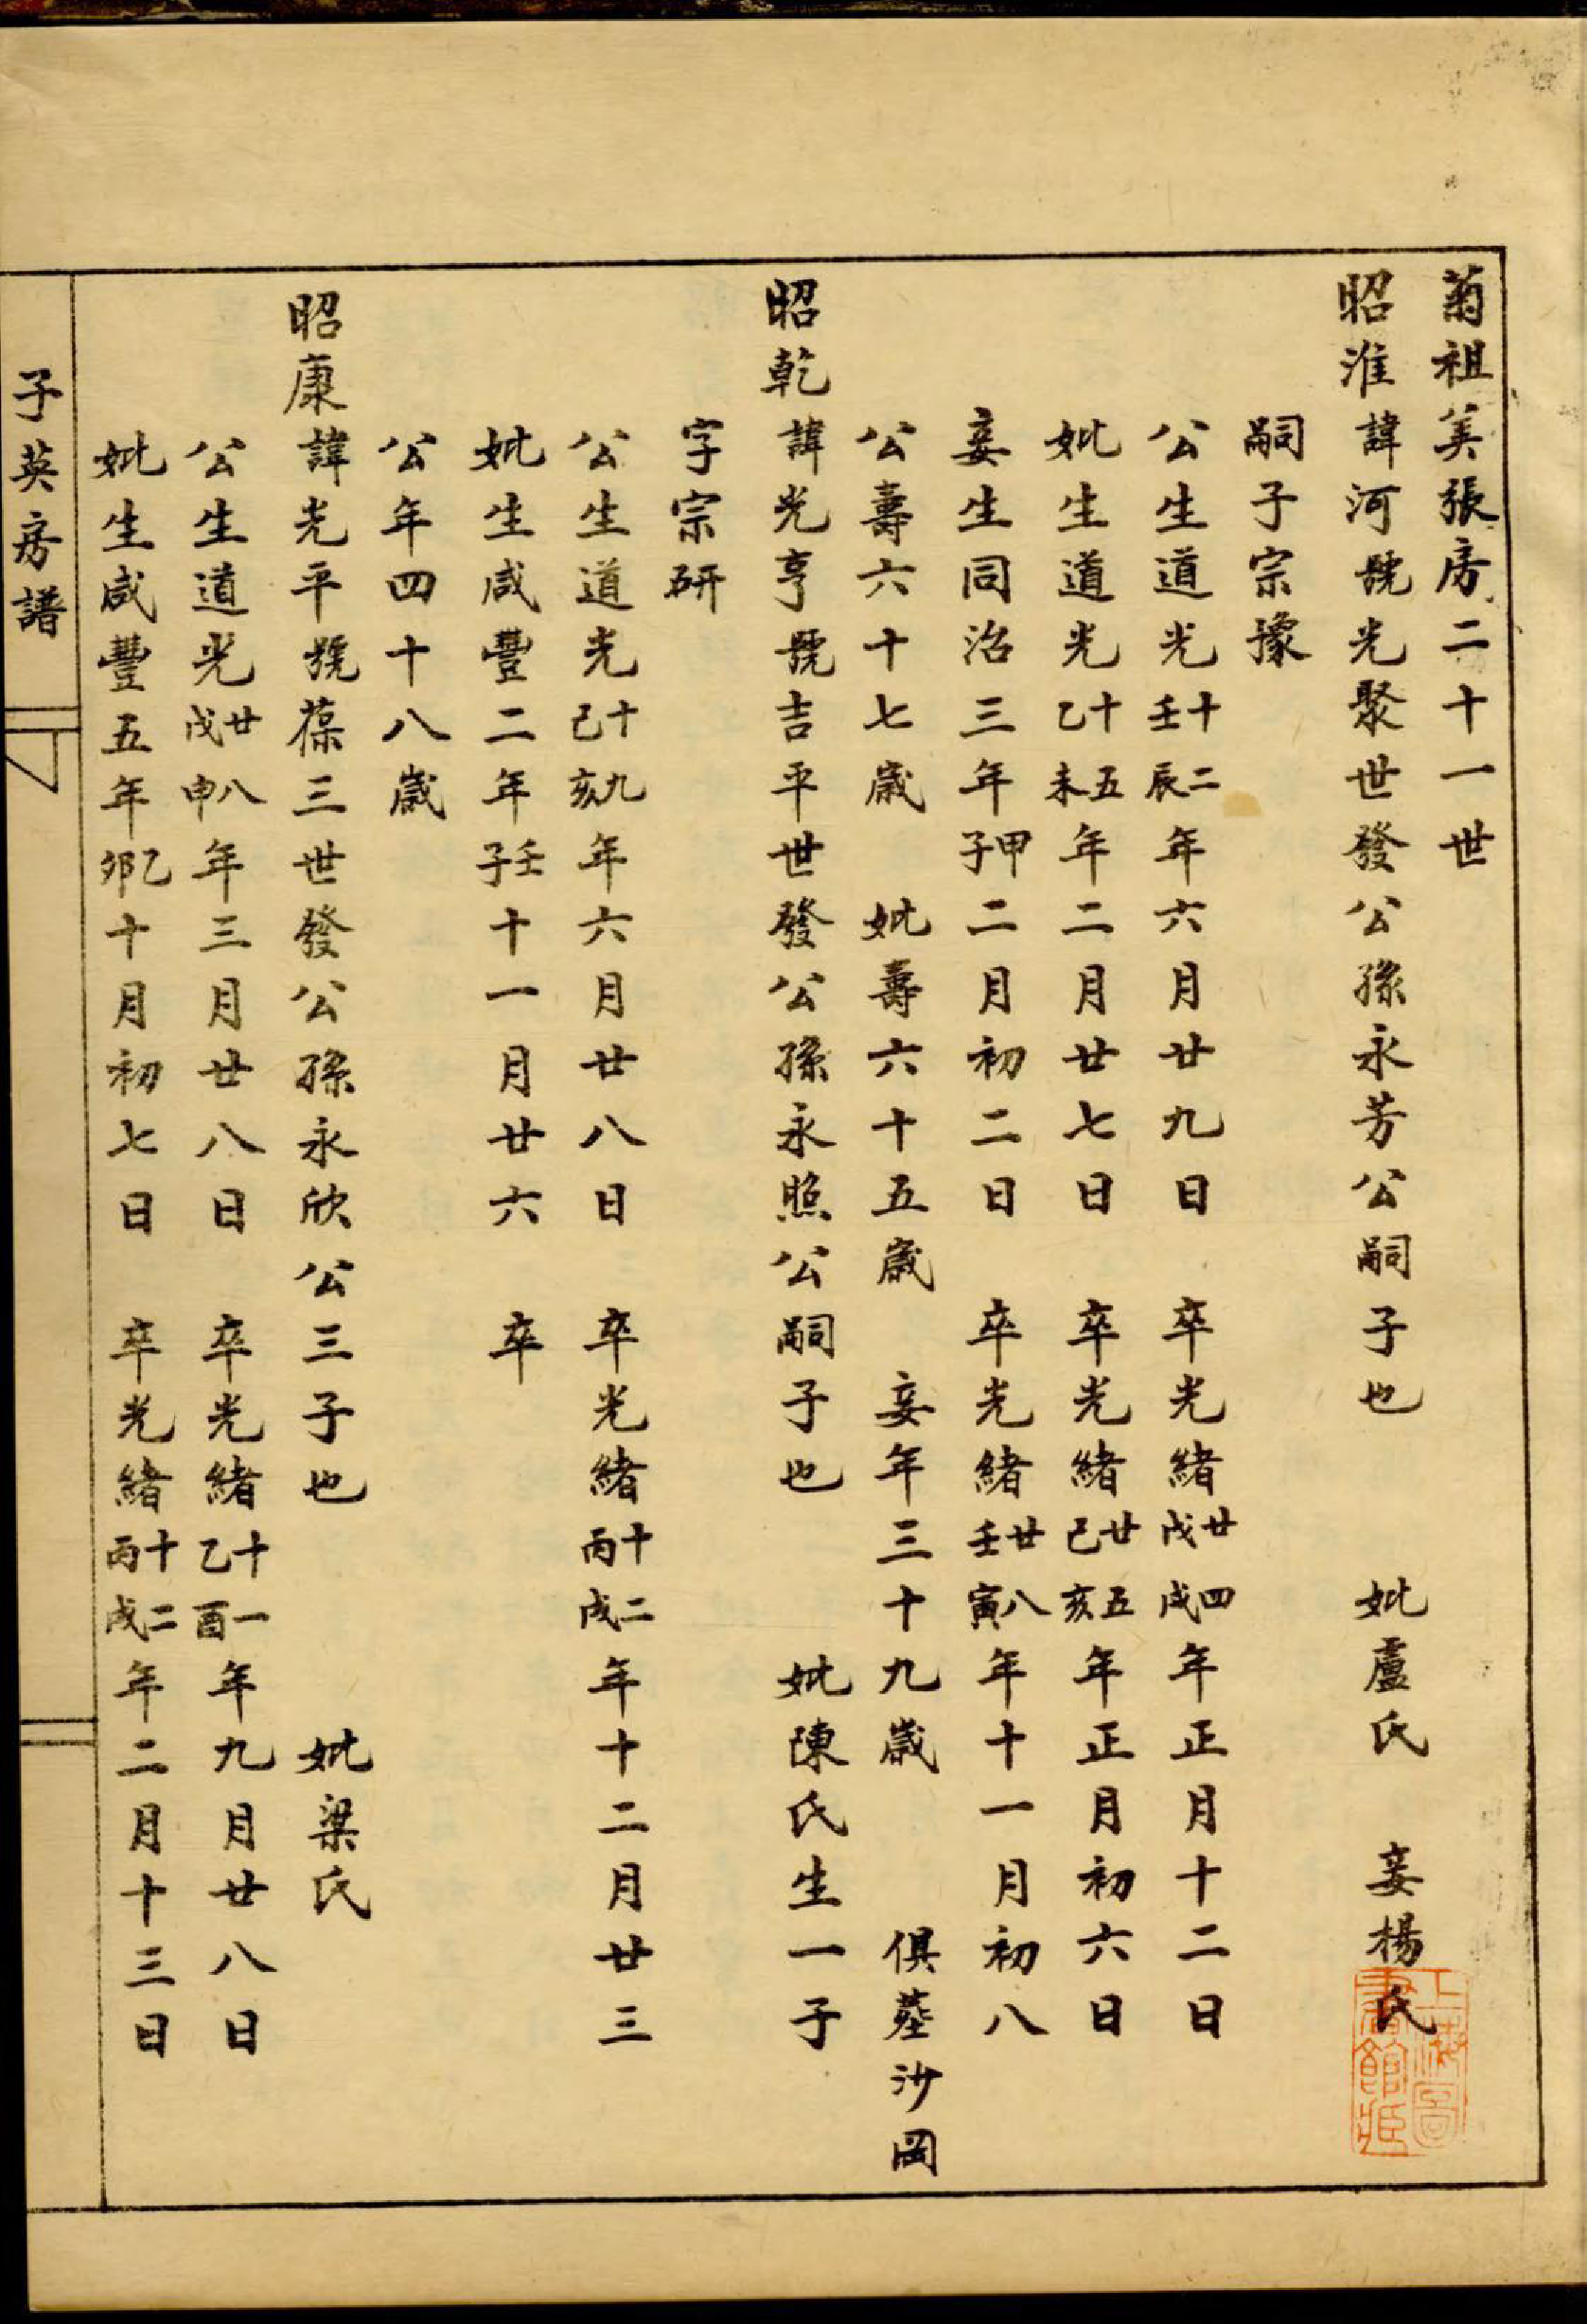 菊祖美張房二十一世
昭淮諱河號光聚世發公孫永芳公嗣子也 妣盧氏 妾楊氏
嗣子宗豫
公生道光十二壬辰年六月廿九日 卒光緒廿四戊戌年正月十二日
妣生道光十五乙未年二月廿七日 卒光緒廿五己亥年正月初六日
妾生同治三年甲子二月初二日 卒光緒廿八壬寅年十一月初八
公壽六十七歲 妣壽六十五歲 妾年三十九歲 俱塟沙岡
昭乾諱光亨號吉平世發公孫永照公嗣子也 妣陳氏生一子
字宗研
公生道光十九己亥年六月廿八日 卒光緒十二丙戌年十二月廿三
妣生咸豐二年壬子十一月廿六 卒
公年四十八歲
昭康諱光平號葆三世發公孫永欣公三子也 妣梁氏
公生道光廿八戊申年三月廿八日 卒光緒十一乙酉年九月廿八日
妣生咸豐五年乙卯十月初七日 卒光緒十二丙戌年二月十三日
子英房譜
上海圖書館藏